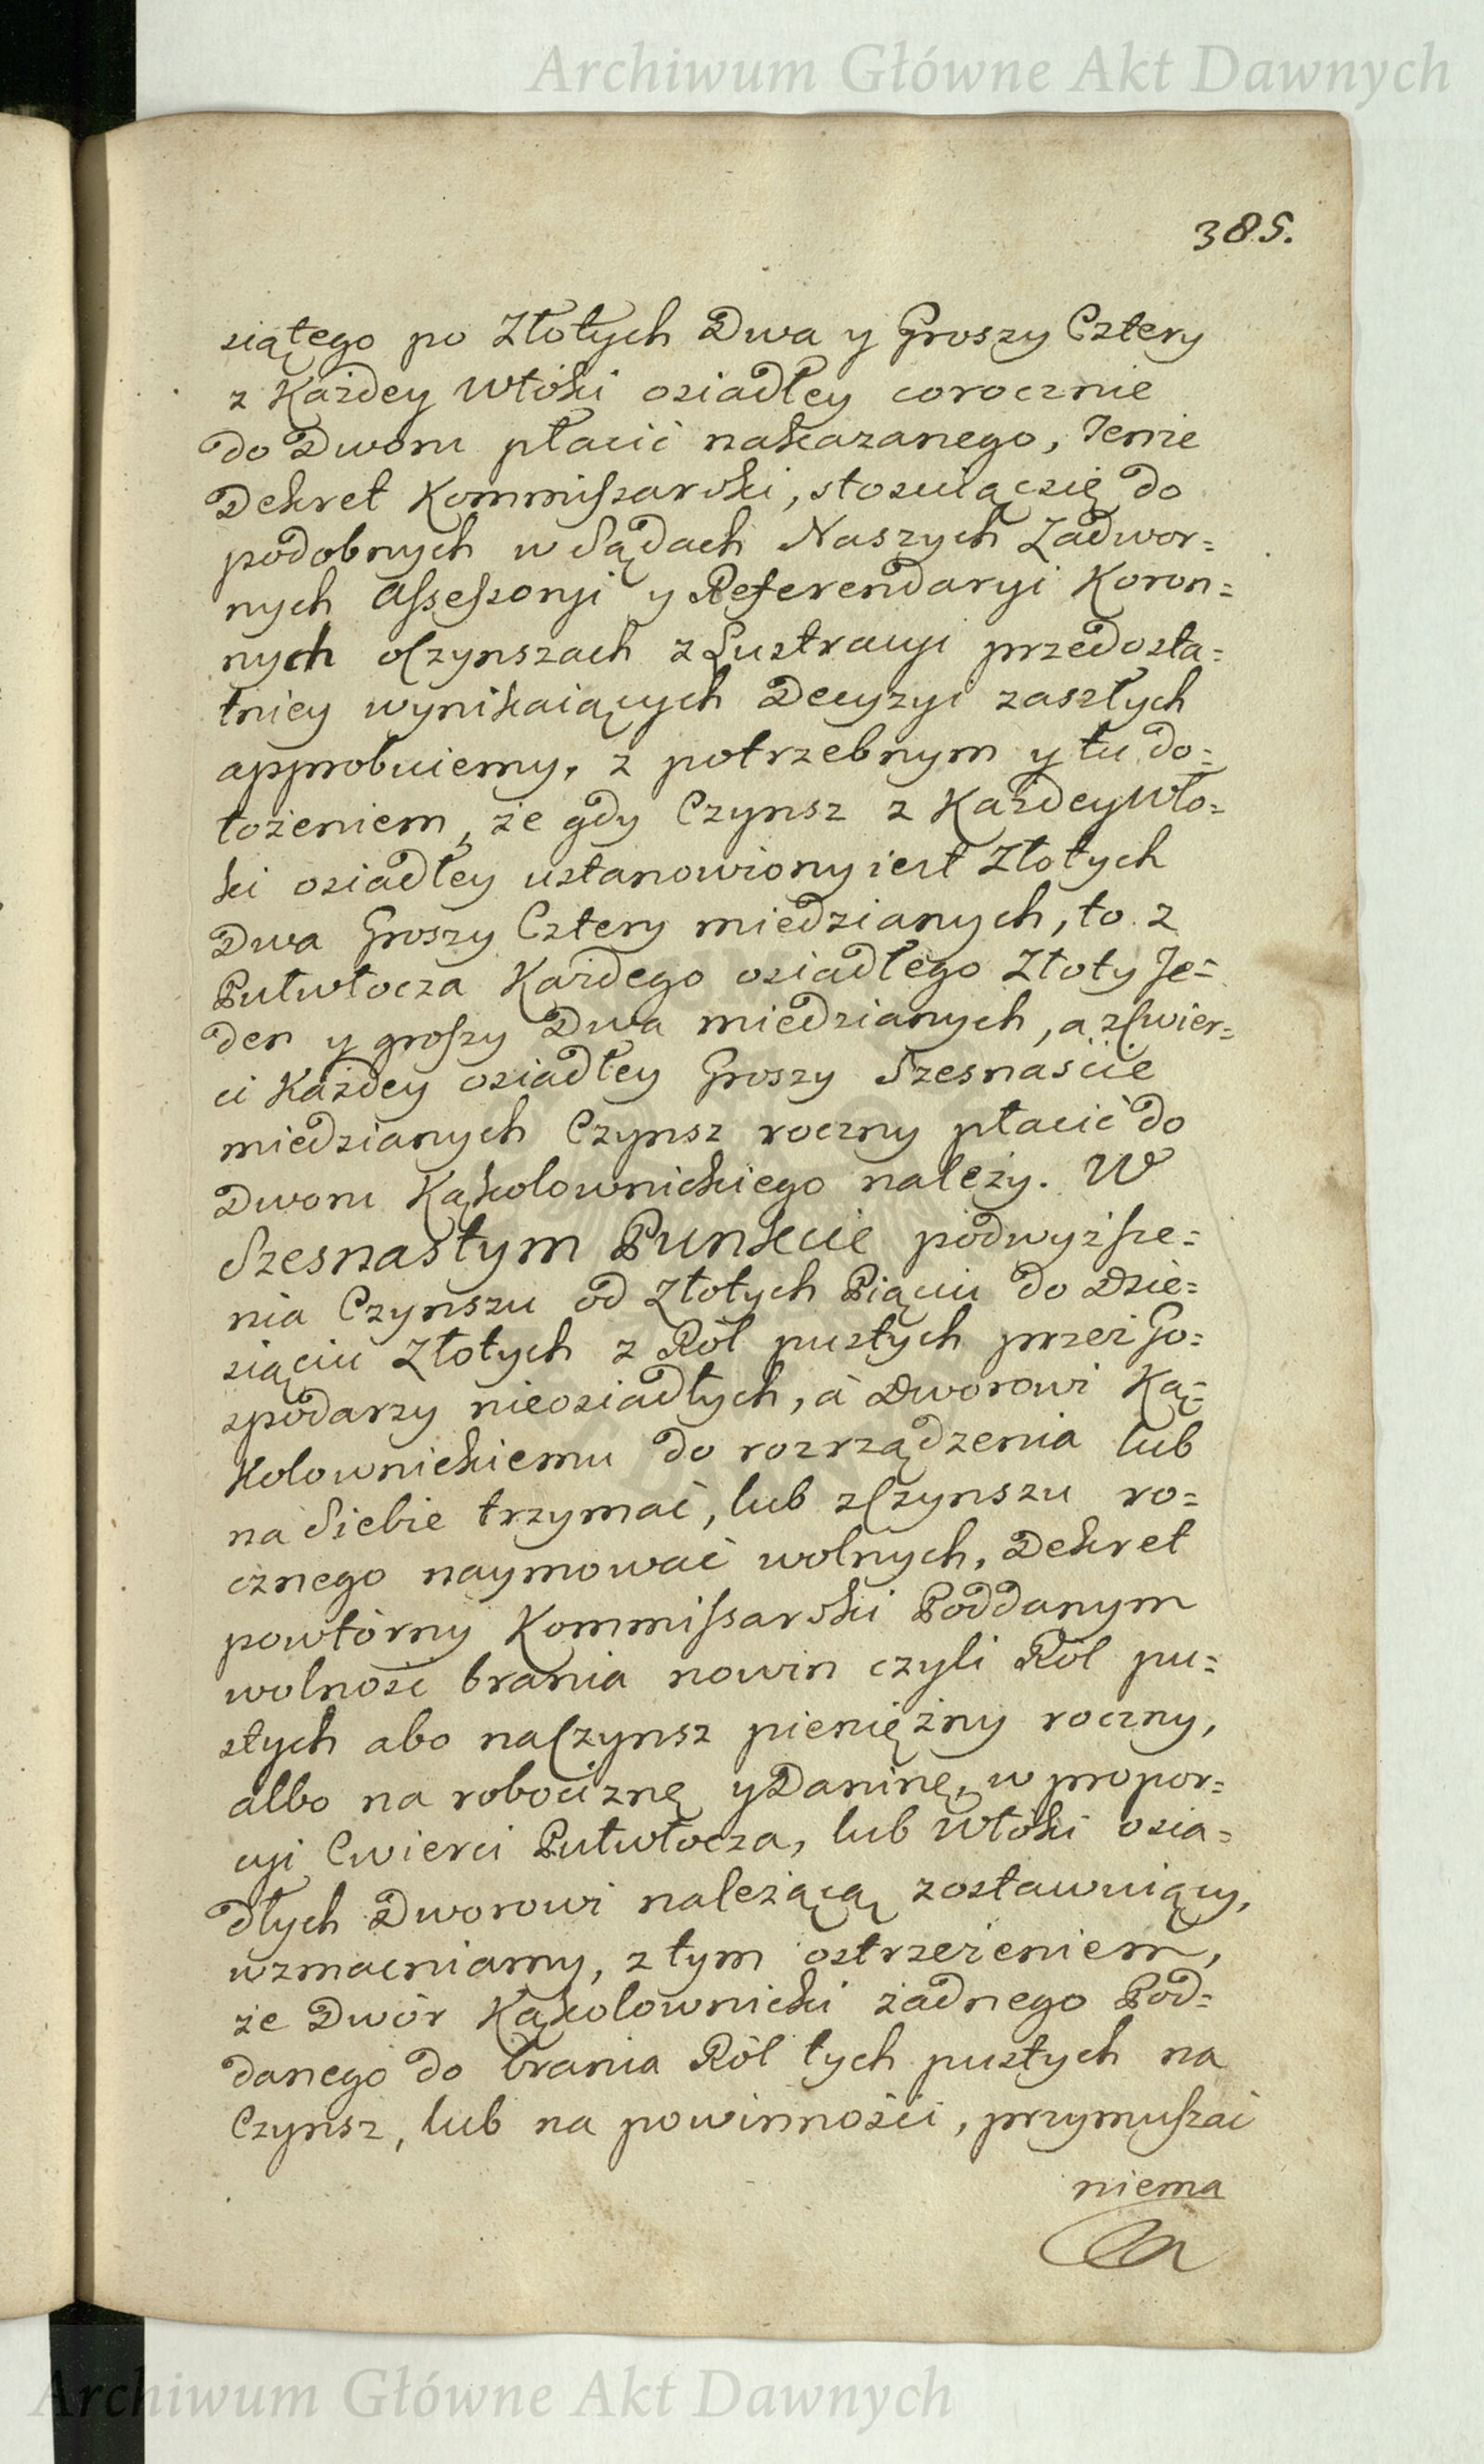 Archiwum Główne Akt Dawnych
385.
siątego po Złotych Dwa y Groszy Cztery
z Każdey Włóki osiadłey corocznie
do Dworu płacić nakazanego, Tenże
Dekret Kommissarski, stosuiąc się do
podobnych w Sądach Naszych Zadwor=
nych Assessoryi y Referendaryi Koron=
nych o Czynszach z Lustracyi przedosta=
tniey wynikaiących Decyzyi zaszłych
approbuiemy, z potrzebnym y tu do=
łożeniem, że gdy Czynsz z Każdey Wło=
ki osiadłey ustanowiony iest Złotych
Dwa Groszy Cztery miedzianych, to z
Pułwłocza Każdego osiadłego Złoty Je=
den y groszy Dwa miedzianych, a z Cwier=
ci Każdey osiadłey Groszy Szesnaście
miedzianych Czynsz roczny płacić do
Dworu Kąkolownickiego należy. W
Szesnastym Punkcie podwyższe=
nia Czynszu od Złotych Piąciu do Dzie=
siąciu Złotych z Ról pustych przez Go=
spodarzy nieosiadłych, á Dworowi Ką=
Kolownickiemu do rozrządzenia lub
na Siebie trzymać, lub z Czynszu ro=
cznego naymować wolnych, Dekret
powtórny Kommissarski Poddanym
wolność brania nowin czyli Ról pu=
stych abo na Czynsz pieniężny roczny,
albo na robociznę y Daninę, w propor=
cyi Cwierci Pułwłocza, lub Włóki osia=
dłych Dworowi należącą zostawuiący,
wzmacniamy, z tym ostrzeżeniem,
że Dwór Kąkolownicki żadnego Pod=
danego do brania Ról tych pustych na
Czynsz, lub na powinności, przymuszać
niema
Archiwum Główne Akt Dawnych